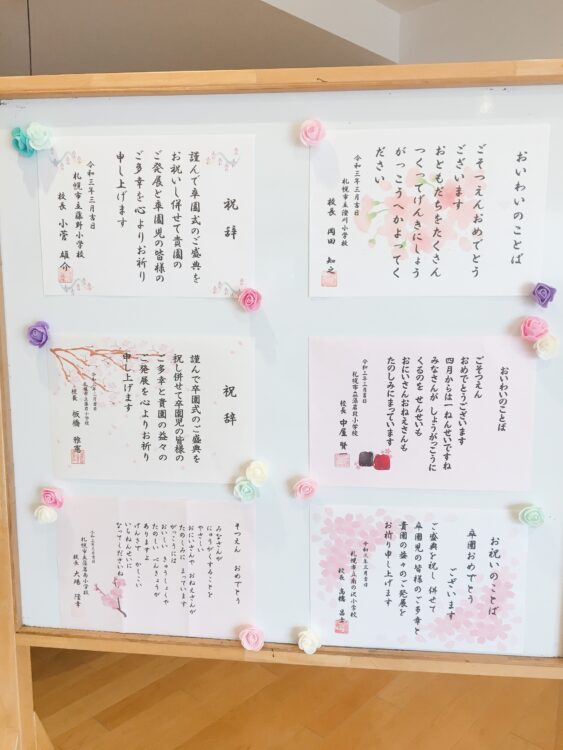 祝辞
謹んで卒園式のご盛典を
お祝いし併せて貴園の
ご発展と卒園児の皆様の
ご多幸を心よりお祈り
申し上げます
令和三年三月吉日
札幌市立藤野小学校
校長 小菅 雄介
おいわいのことば
ごそつえんおめでとう
ございます
おともだちをたくさん
つくってげんきにしょう
がっこうへかよってく
ださい
令和三年三月吉日
札幌市立澄川小学校
校長 岡田 知之
祝辞
謹んで卒園式のご盛典を
祝し併せて卒園児の皆様の
ご多幸と貴園の益々の
ご発展を心よりお祈り
申し上げます
令和三年三月吉日
校長 板橋 雅寛
おいわいのことば
ごそつえん
おめでとうございます
四月からは一ねんせいですね
みなさんが しょうがっこうに
くるのを せんせいも
おにいさんおねえさんも
たのしみにまっています
令和三年三月吉日
校長 中屋 賢一
そつえん おめでとう
みなさんが
にゅうがくすることを
やさしい
おにいさんや おねえさんが
たのしみに まっています
がっこうには
おいしい きゅうしょくや
たのしい べんきょうが
ありますよ
げんきで かっこいい
いちねんせいに
なってくださいね
校長 大場 隆幸
お祝いのことば
卒園おめでとう
ございます
ご盛典を祝し 併せて
卒園児の皆様のご多幸と
貴園の益々のご発展を
お祈り申し上げます
令和三年三月吉日
札幌市立南の沢小学校
校長 高橋 昌士